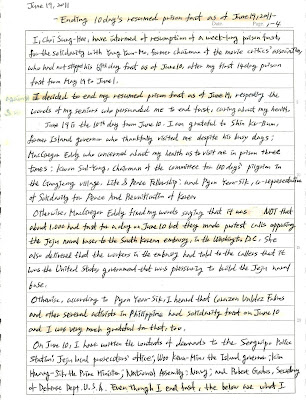 June 19, 2011
- Ending 10 day's resumed prison fast as of June 19, 2011 -
1-4
I, Choi Sung-Hee, have informed of resumption of a week-long prison fast,
for the solidarity with Yang Yoon-Mo, former chairman of the movie critics' association,
who had stopped his fast as of June, after my first 19 day prison
fast from May 19 to June 1.
I decided to end my resumed prison fast as of June 19, respecting the
words of my seniors who persuaded me to end fast, caring about my health.
June 19 is the 10th day from June 10. I am grateful to Shin Ku-Bum,
former Island governor who thankfully visited me despite his busy days;
MacGregor Eddy who concerned about my health as to visit me in prison three
times; Kwon Sul-Yong, chairman of the committee for 100 days' pilgrim in
the Gangjeong village, Life & Peace Fellowship; and Pyon Yeon-Sik, co-representative
of Solidarity for Peace And Reunification of Korea.
Otherwise MacGregor Eddy finding words saying that it was NOT that
about 1,000 had fast for a day on June 10 but they made protest calls opposing
the Jeju naval base to the South Korean embassy, in the Washington D.C. She
also delivered that the workers in the embassy had told to the callers that it
was the United States government that was pressuring to build the Jeju naval
base.
Otherwise, according to Pyon Yeon-Sik, I heard that Corazon Valdez Fabros
and other several activists in Philippine had solidarity fast on June 10
and I was very much grateful on that, too.
On June 10, I have written the contents of demands to the Seogwipo Police
Station; Jeju local prosecutors' office; Woo Keun-Min the Island governor; Kim
Hwang-Sik the Prime Minister; National Assembly; Navy; and Robert Gates, Secretary
of Defense Dept. U.S.A. Even Though I end fast, the below are what I